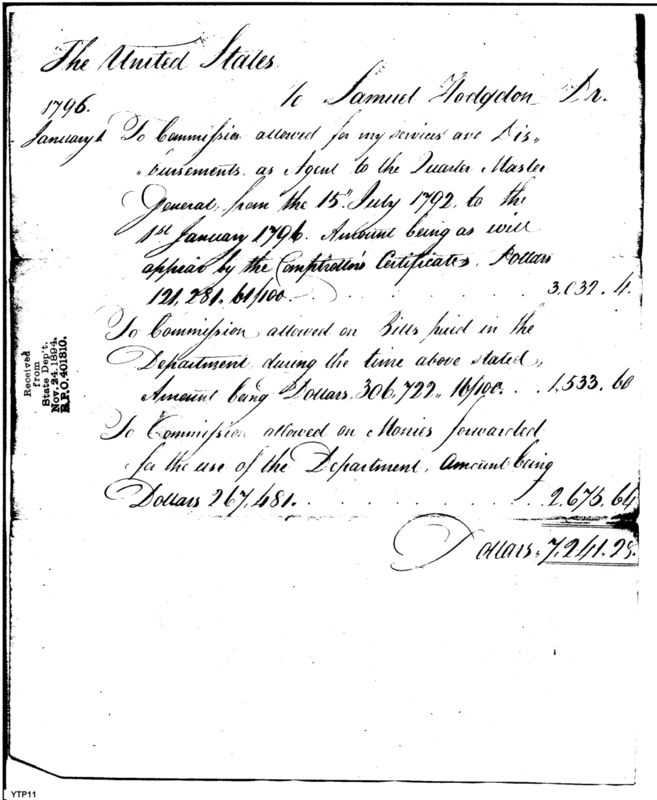 The United States
To Samuel Hodgdon Dr.
1796.
January 1 To Commission allowed for my services and Dis„
„bursements, as Agent to the Quarter Master
General, from the 15" July 1792, to the
1st January 1796. Amount being as will
appear by the Comptroller's Certificates, Dollars
121,281. 61/100. . . . . . . . 3,032. 4.
To Commission allowed on Bills paid in the
Department, during the time above stated,
Amount being Dollars, 306,722„ 16/100. . . 1,533. 60
To Commission allowed on Monies forwarded
for the use of the Department, Amount being
Dollars 267,481. . . . . . . . . 2,675. 64
Dollars„ 7,241. 28.
Received
from
State Dep't.
Nov. 24, 1894.
R.P.O. 401810.
YTP11